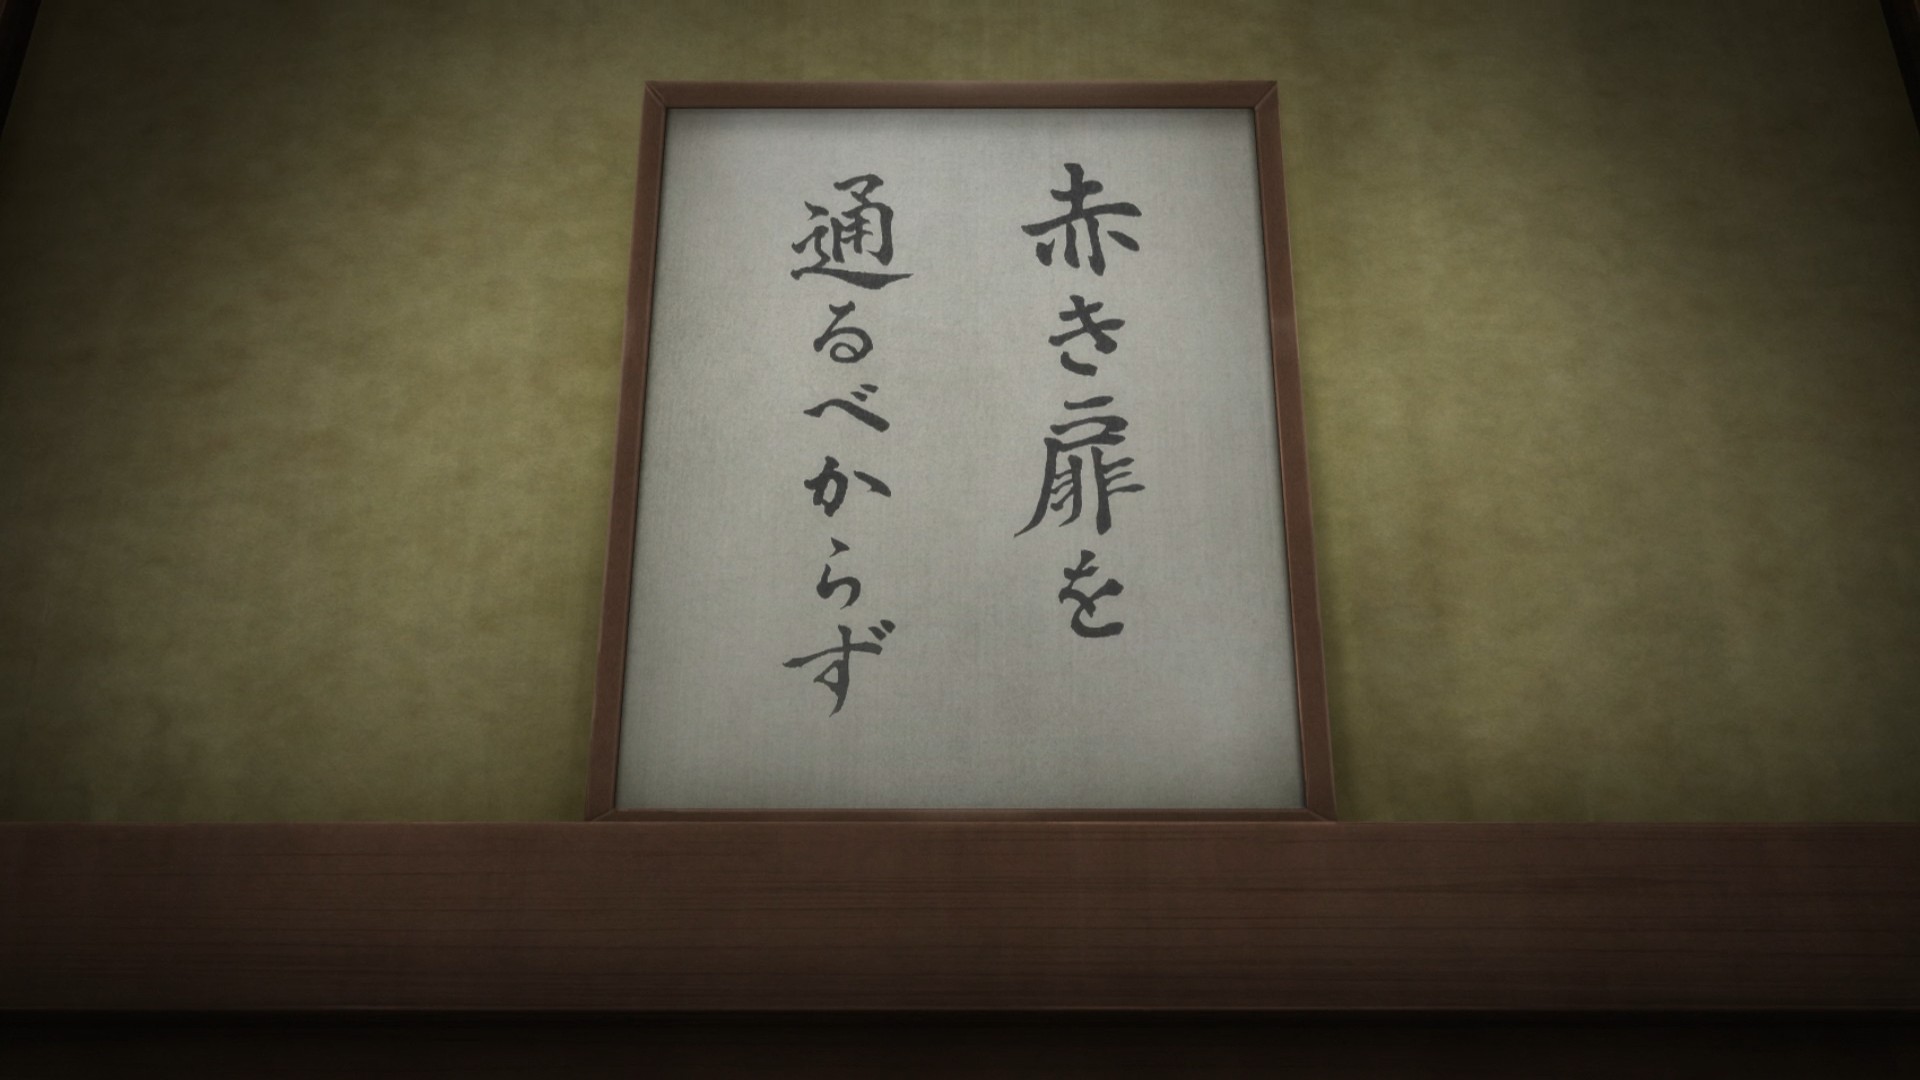 赤き扉を
通るべからず